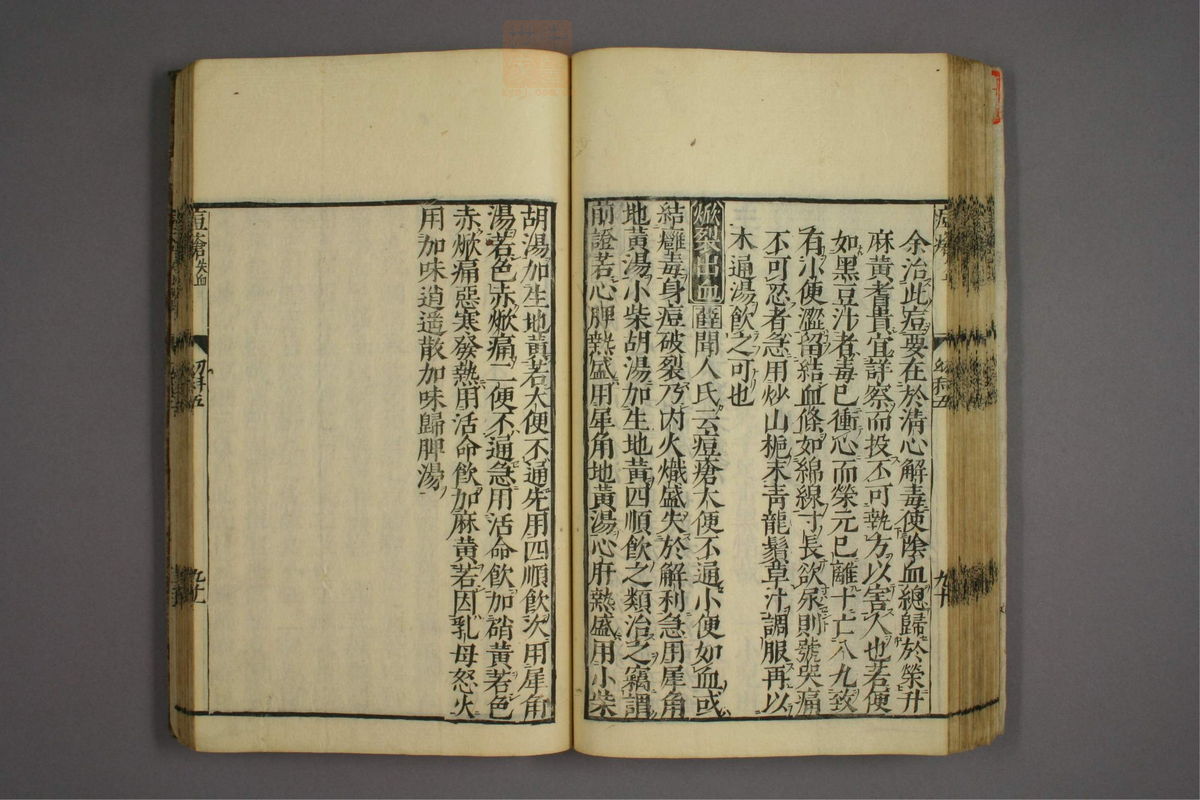 余治此痘要在於清心解毒使陰血總歸於榮升
麻黃耆貴宜詳察而投不可執方以害人也若便
如黑豆汁者毒已衝心而榮元已離十亡八九致
有小便澀留結血條如綿線寸長欲尿則號哭痛
不可忍者急用炒山梔末青龍鬚草汁調服再以
木通湯飲之可也
焮裂出血 薛 聞人氏云痘瘡大便不通小便如血或
結癰毒身痘破裂乃內火熾盛失於解利急用犀角
地黃湯小柴胡湯加生地黃四順飲之類治之竊謂
前證若心脾熱盛用犀角地黃湯心肝熱盛用小柴
胡湯加生地黃若大便不通先用四順飲次用犀角
湯若色赤焮痛二便不通急用活命飲加硝黃若色
赤焮痛惡寒發熱用活命飲加麻黃若因乳母怒火
用加味逍遥散加味歸脾湯
痘瘡 失血
幼科五